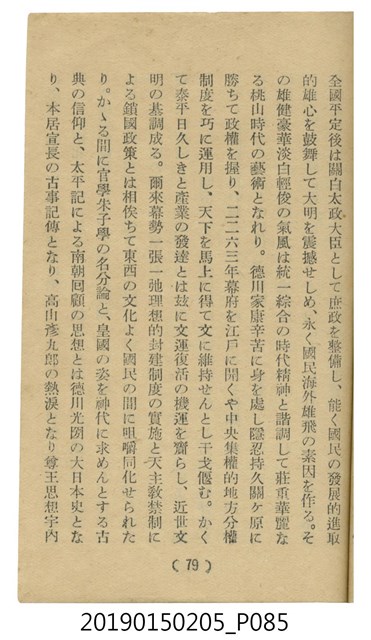 全國平定後は關白太政大臣として庶政を整備し、能く國民の發展的進取
的雄心を鼓舞して大明を震撼せしめ、永く國民海外雄飛の素因を作る。そ
の雄健豪華淡白輕俊の氣風は統一綜合の時代精神と諧調して莊重華麗な
る桃山時代の藝術となれり。德川家康辛苦に身を處し隱忍持久關ケ原に
勝ちて政權を握り、二二六三年幕府を江戶に開くや中央集權的地方分權
制度を巧に運用し、天下を馬上に得て文に維持せんとし干戈偃む。かく
て泰平日久しきと產業の發達とは玆に文運復活の機運を齎らし、近世文
明の基調成る。爾來幕勢一張一弛理想的封建制度の實施と天主敎禁制に
よる鎖國政策とは相俟ちて東西の文化よく國民の間に咀嚼同化せられた
り。かゝる間に官學朱子學の名分論と、皇國の姿を神代に求めんとする古
典の信仰と、太平記による南朝回顧の思想とは德川光圀の大日本史とな
り、本居宣長の古事記傳となり、高山彥九郎の熱淚となり尊王思想宇內
( 79 )
20190150205_P085